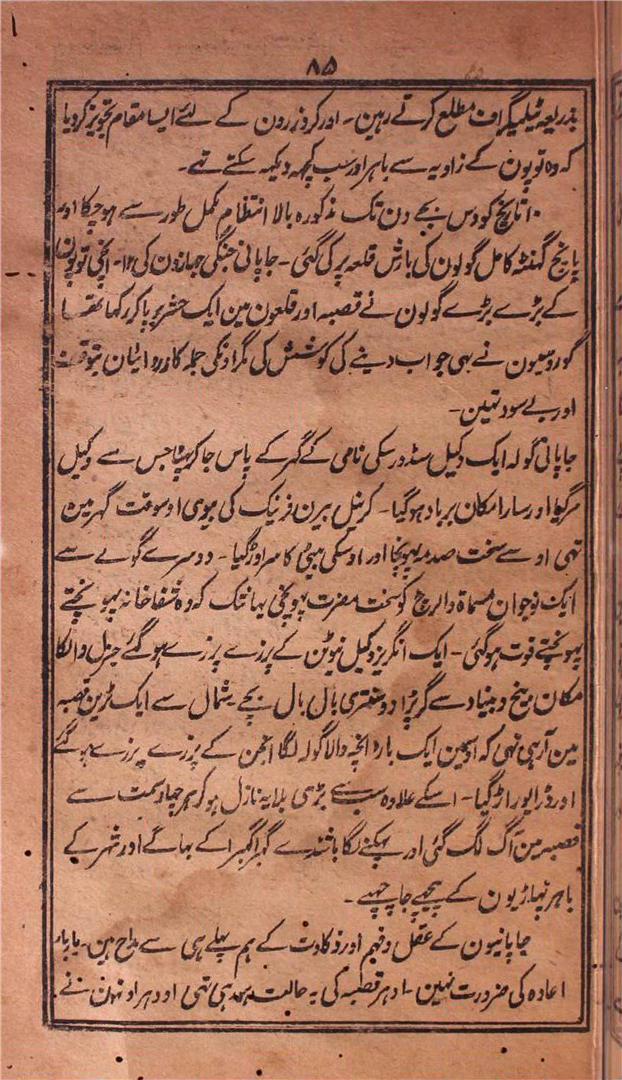 ۸۵
بذریعہ ٹیلیگراف مطلع کرتے رہین۔ اور کروزرون کے لئے ایسا مقام تجویز کردیا
کہ وہ توپون کے زاویہ سے باہر اور سب کچھہ دیکھہ سکتے تہے۔
۱۰ تاریخ کو دس بجے دن تک مذکورہ بالا انتظام مکمل طور سے ہوچکا اور
پانچ گھنٹہ کامل گولون کی بارش قلعہ پر کی گئی۔ جاپانی جنگی جہازون کی ۱۲۔ انچی توپون
کے بڑے بڑے گولون نے قصبہ اور قلعون مین ایک حشر برپا کر رکھا تھا
گو روسیون نے بھی جواب دینے کی کوشش کی مگر اونکی جملہ کارروائیان بیوقت
اور بے سود تہین۔
جاپانی گولہ ایک وکیل سڈورسکی نامی کے گہر کے پاس جاکر پہٹا جس سے وکیل
مرگیا اور سارا مکان برباد ہوگیا۔ کرنل بیرن فرنیک کی بیوی اوسوقت گہر مین
تہی اوسے سخت صدمہ پہونچا اور اوسکی بیٹی کا سر اوڑگیا۔ دوسرے گولے سے
ایک نوجوان مسماۃ والرچ کو سخت مضرت پہونچی یہانتک کہ وہ شفاخانہ پہونچتے
پہونچتے فوت ہوگئی۔ ایک انگریز وکیل نیوٹن کے پرزے پرزے ہوگئے جنرل والکا
مکان میخ و بنیاد سے گر پڑا دو سنتری بال بال بچے شمال سے ایک ٹرین قصبہ
مین آرہی تہی کہ اوسمین ایک بارہ انچہ والا گولہ لگا انجن کے پرزے پرزے ہوگئے
اور ڈرائیور اڑگیا۔ اسکے علاوہ سب سے بڑی بلا یہ نازل ہوئی کہ ہر چہار سمت سے
قصبہ مین آگ لگ گئی اور پہکنے لگا باشندے گہرا گہرا کے بہاگے اور شہر کے
باہر پہاڑیون کے پیچہے جا چہپے۔
جاپانیون کے عقل و فہم اور ذکاوت کے ہم پہلے ہی سے مداح ہین۔ باربار
اعادہ کی ضرورت نہین۔ ادہر قصبہ کی یہ حالت ہورہی تہی اور ادہر اونہون نے